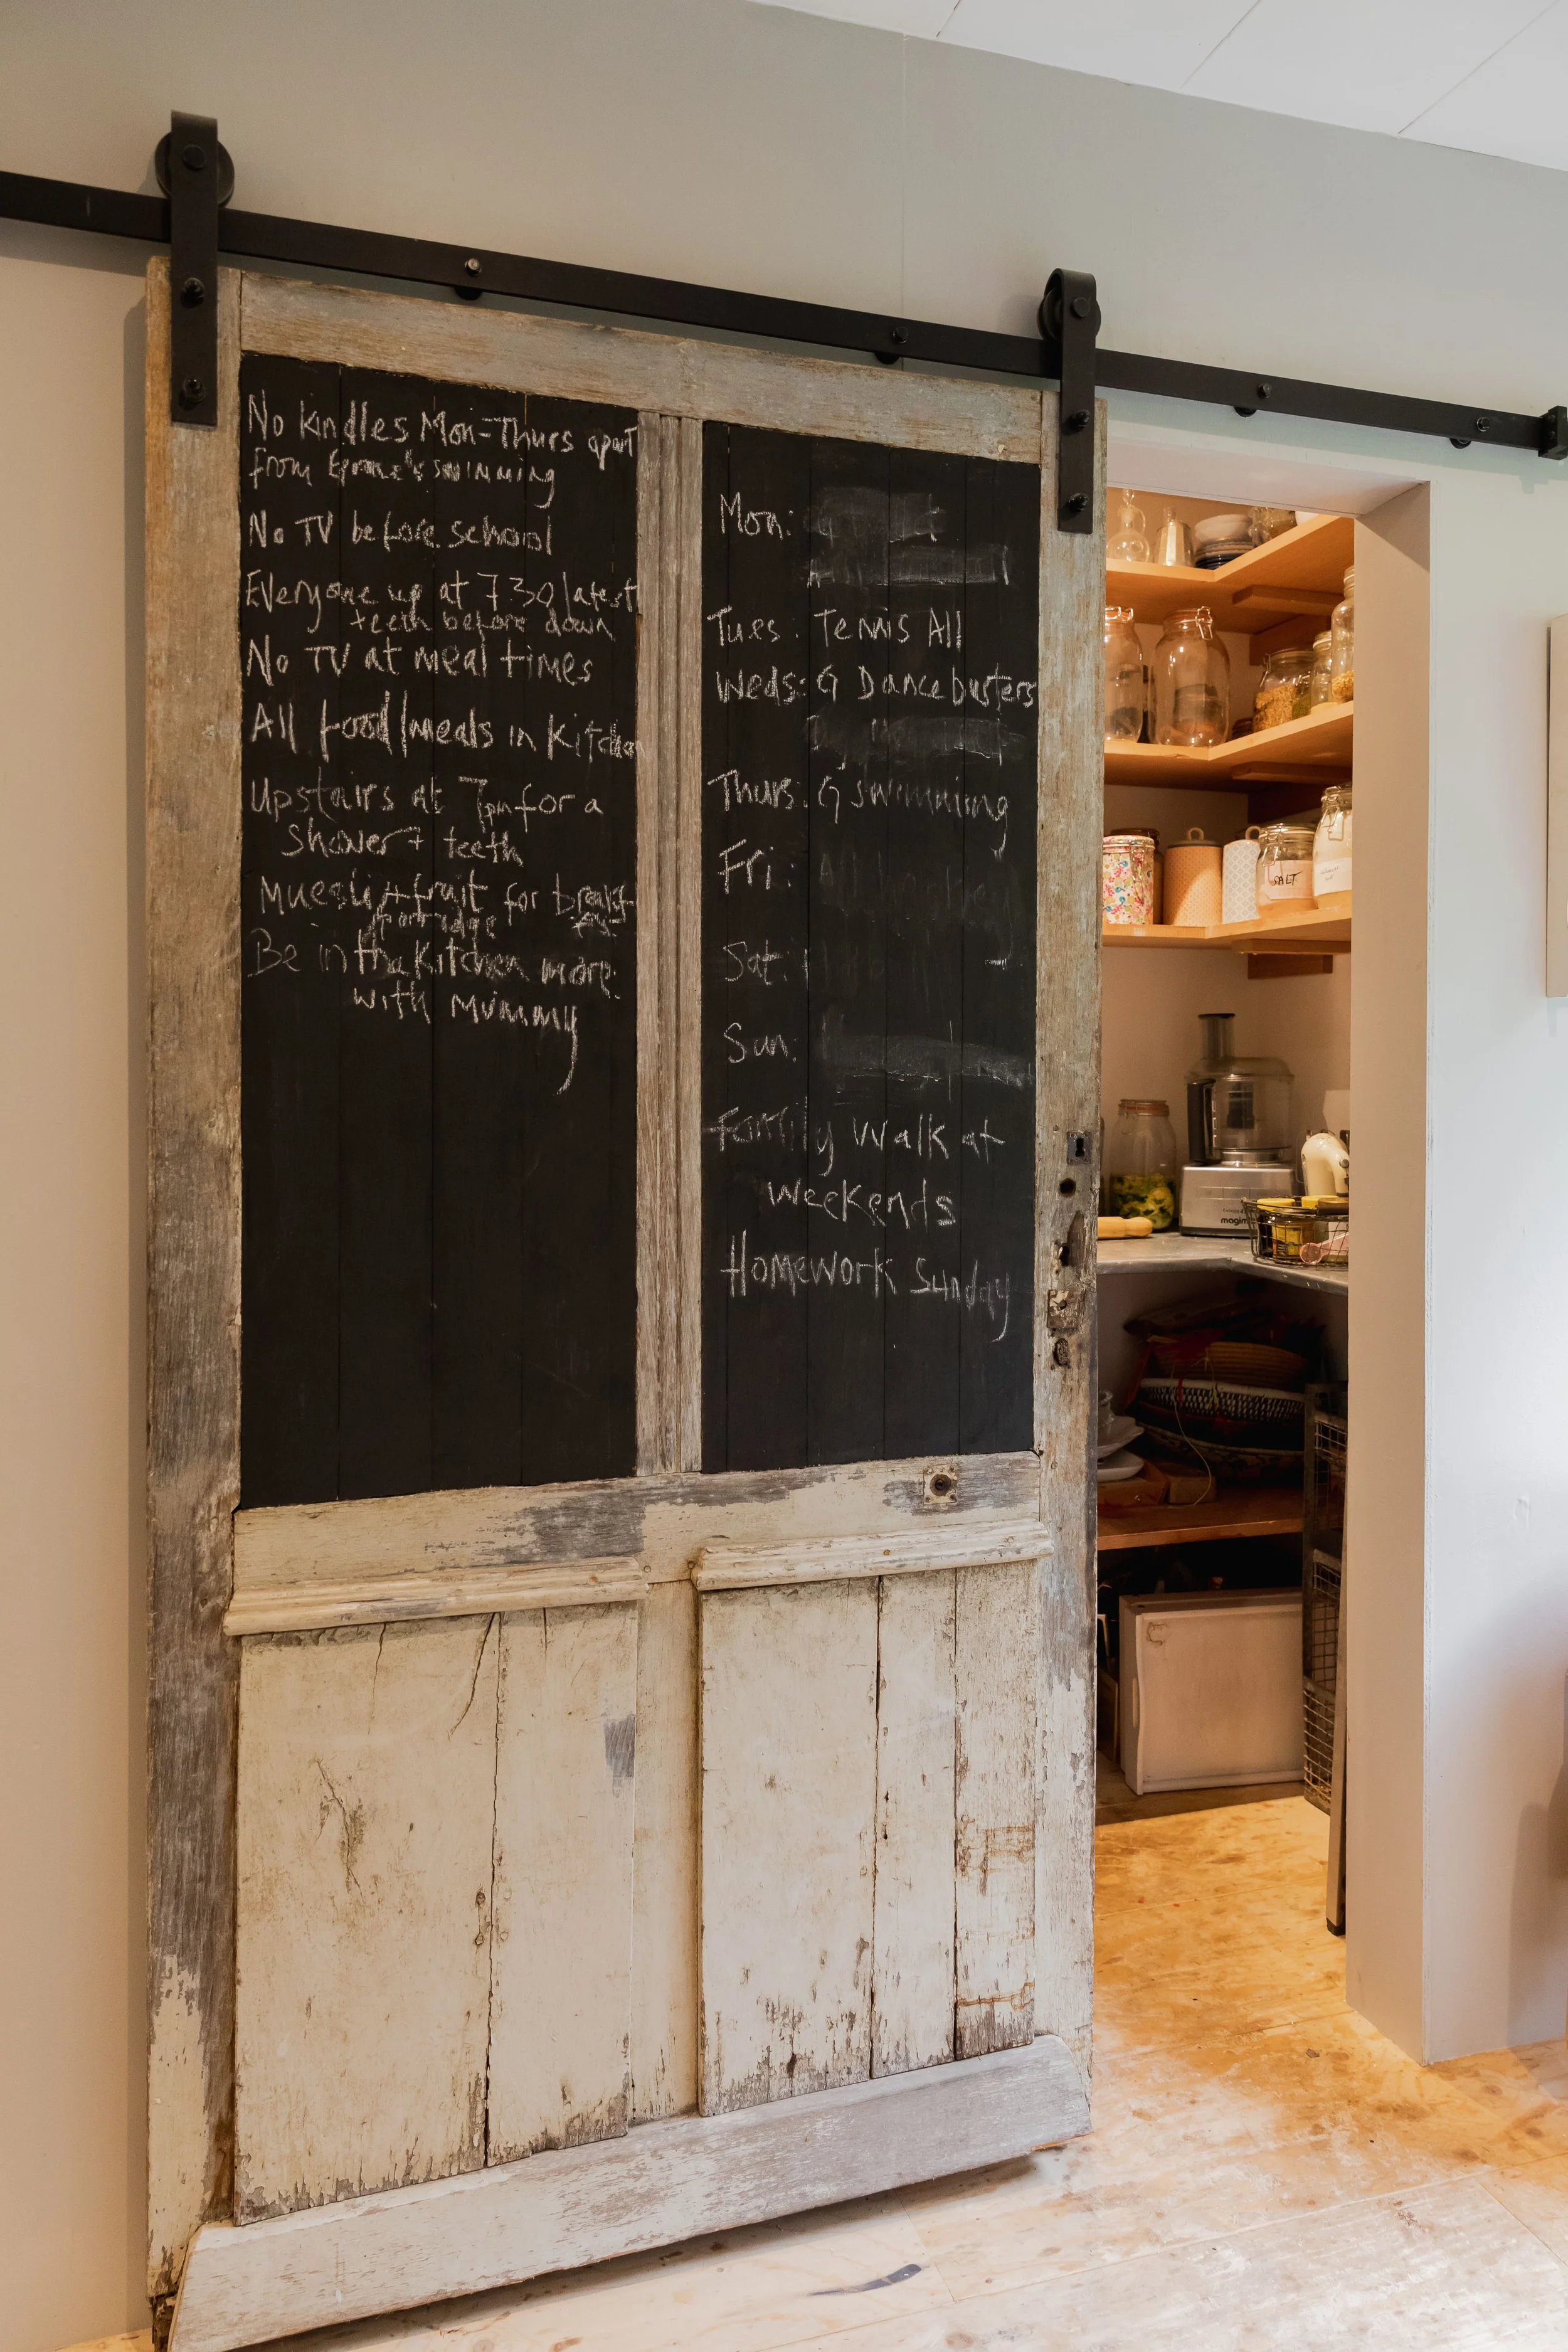 No Kindles Mon-Thurs apart
from swimming
No TV before school
Everyone up at 7.30 latest
teeth before down
No TV at meal times
All food/meals in Kitchen
Upstairs at 7pm for a
shower + teeth
Muesli + fruit for breakf-
/porridge ast
Be in the Kitchen more
with Mummy
Mon: G
Tues: Tennis All
Weds: G Dancebusters
Thurs: G swimming
Fri:
Sat:
Sun:
Family walk at
weekends
Homework Sunday
SALT